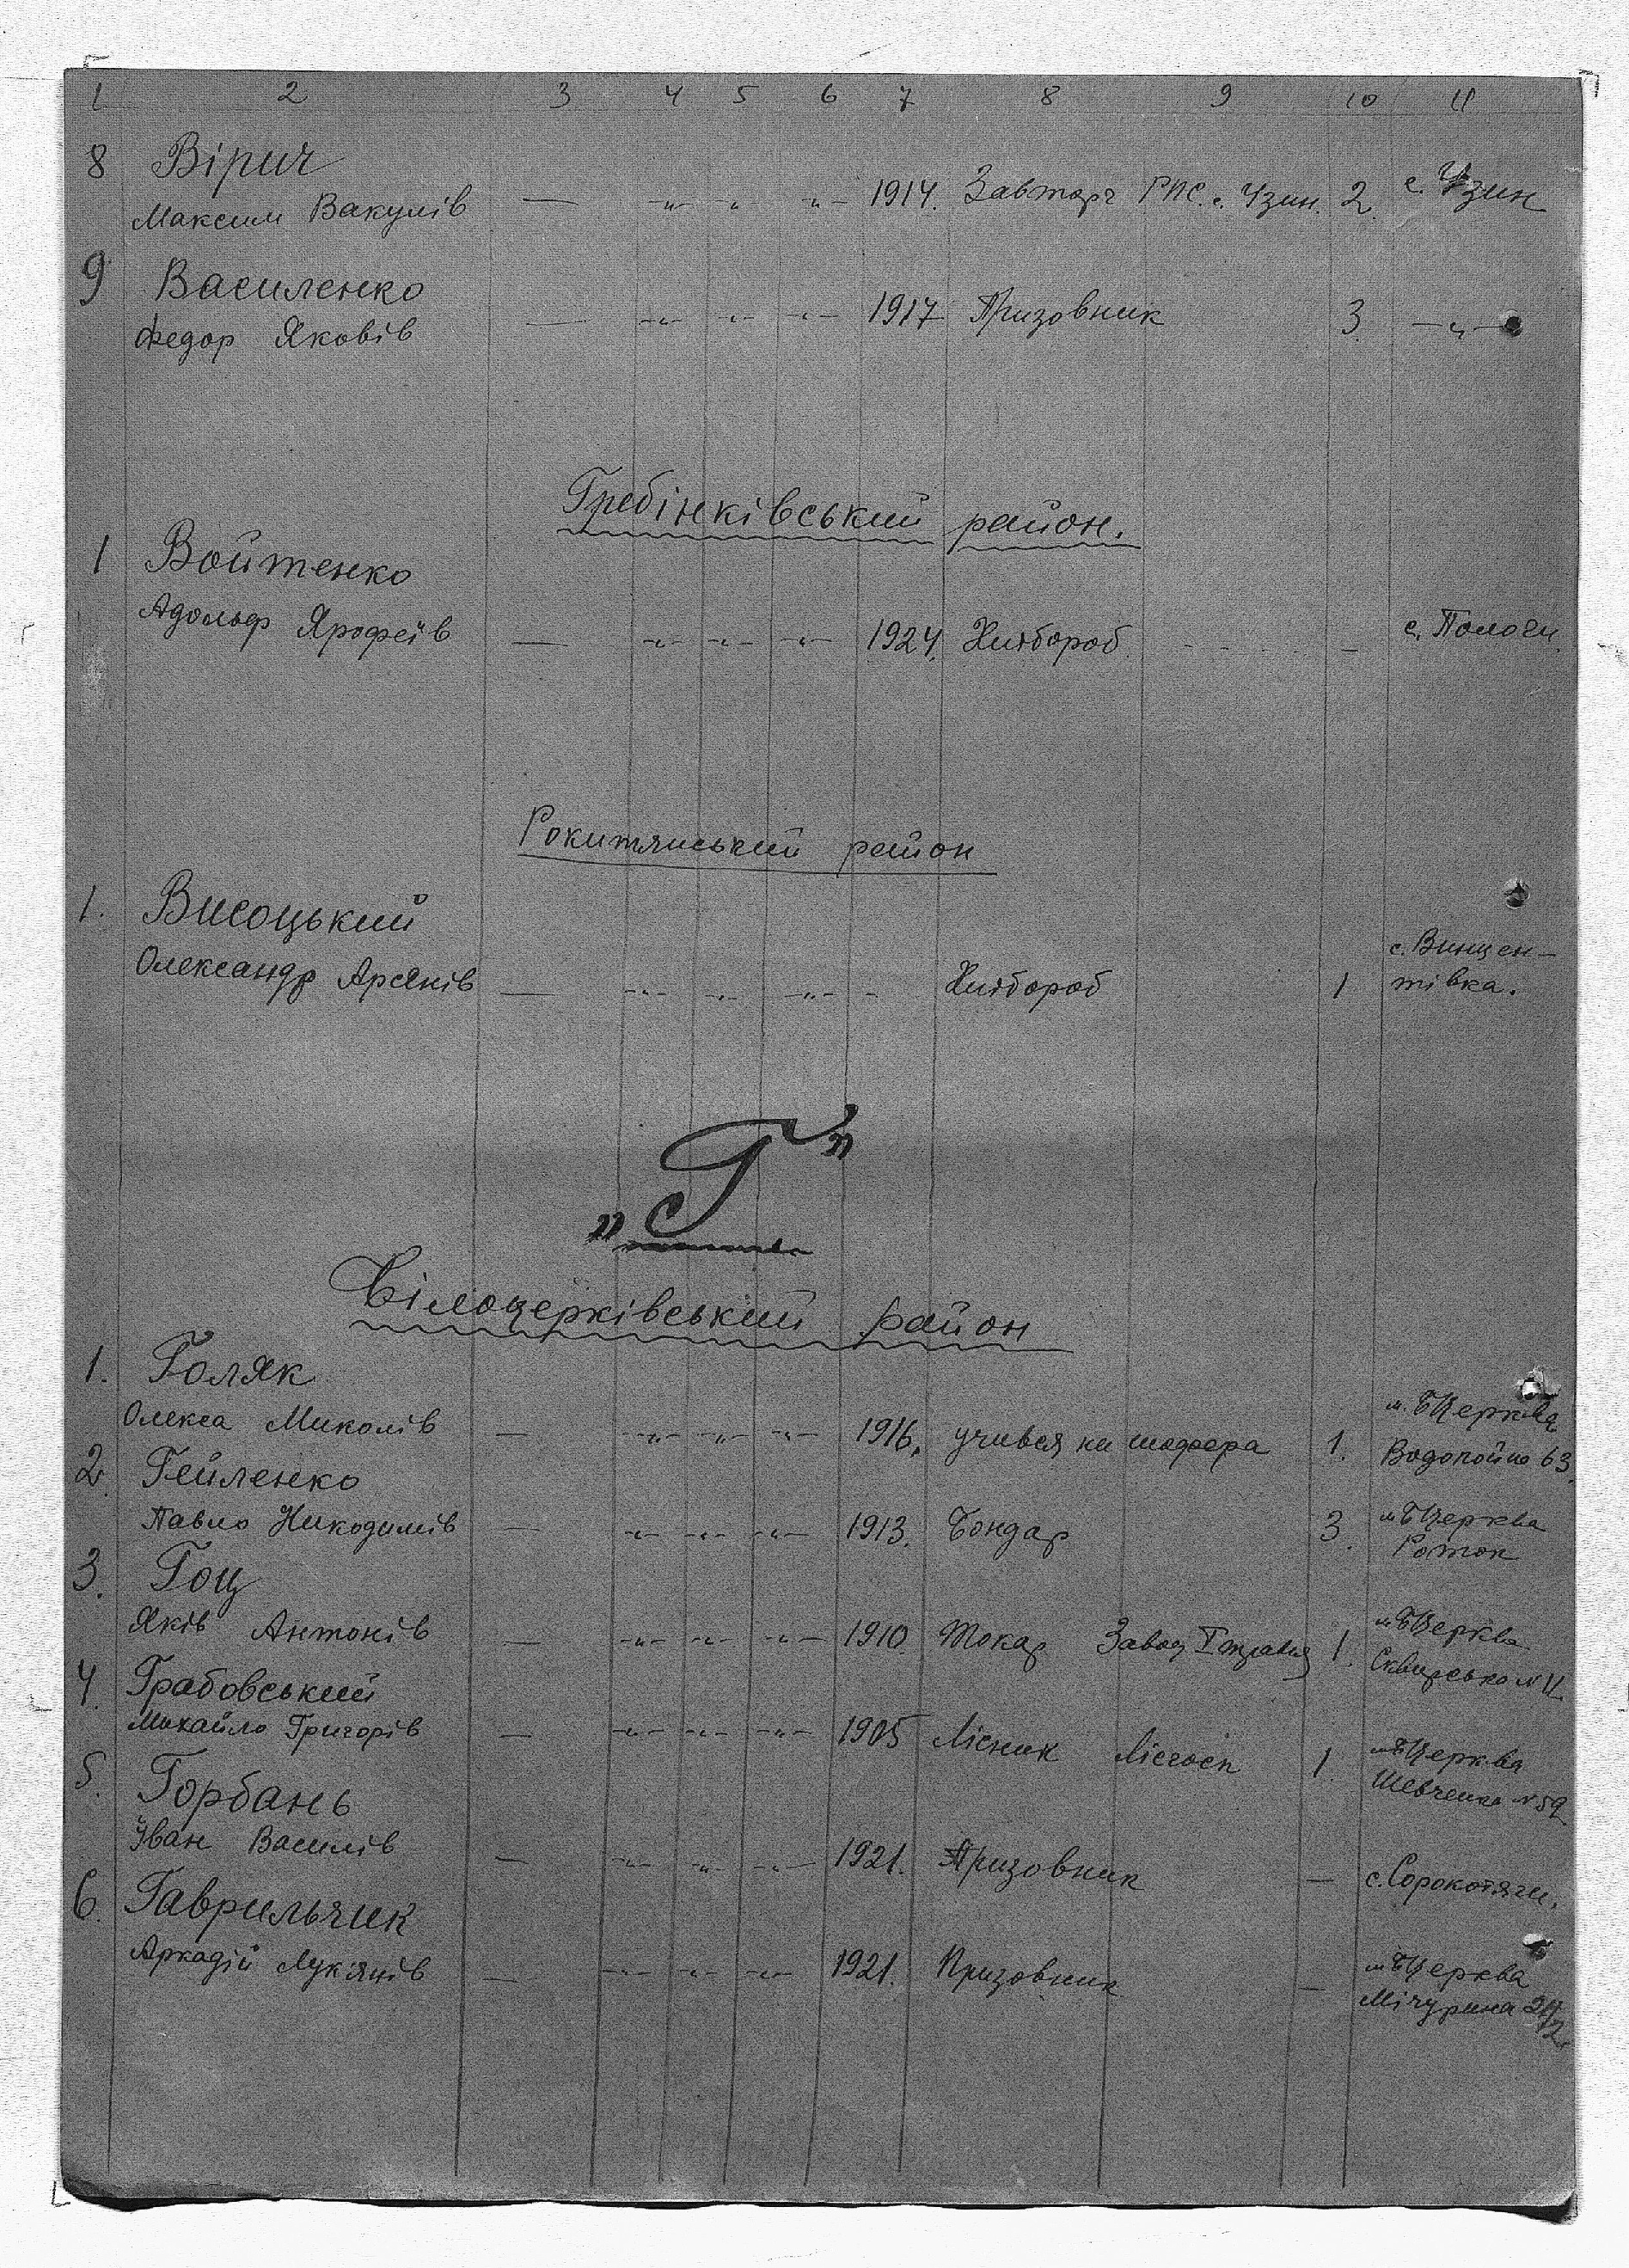 1 2 3 4 5 6 7 8 9 10 11
8 Вірич
Максим Вакулів — -„- „ „- 1914. Завторг РПС. с. Узин. 2. с. Узин
9 Василенко
Федор Яковів — -„- -„- -„- 1917 Призовник 3. -„-
Гребінківський район.
1 Войтенко
Адольф Ярофеїв — -„- -„- -„- 1924. Хлібороб - с. Пологи.
Рокитянський район
1. Висоцький
Олександр Арсенів — -„- -„- -„- - Хлібороб 1 с. Винцен-
тівка.
„Г”
Білоцерківський район
1. Голяк
Олекса Миколів — -„- -„- -„- 1916. учився на шофера 1. м. БЦерква
Водопойна 63.
2. Гейленко
Павло Никодимів — -„- -„- -„- 1913. Бондар 3. м. БЦерква
Роток
3. Гоц
Яків Антонів — -„- -„- -„- 1910. Токар Завод І травня 1. м. БЦерква
Сквирська № 11.
4. Грабовський
Михайло Григорів — -„- -„- -„- 1905 Лісник Лісгосп 1. м. БЦерква
Шевченка № 59
5. Горбань
Іван Василів — -„- -„- -„- 1921. Призовник — с. Сорокотяги.
6. Гаврильчик
Аркадій Лук'янів — -„- -„- -„- 1921. Призовник — м. БЦерква
Мічурина